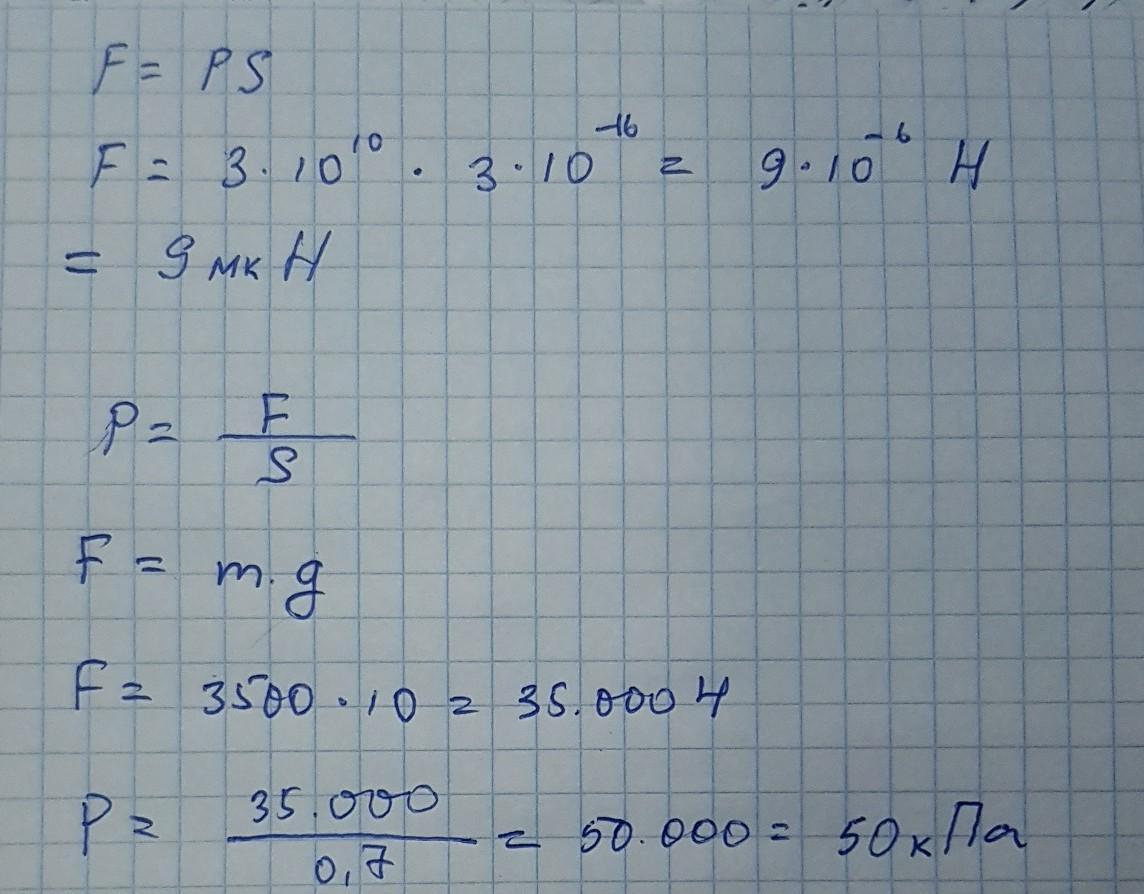 F = PS
F = 3·10¹⁰ · 3·10⁻¹⁶ = 9·10⁻⁶ Н
= 9 мкН
P = F/S
F = m·g
F = 3500·10 = 35.000 Н
P = 35.000/0,7 = 50.000 = 50кПа